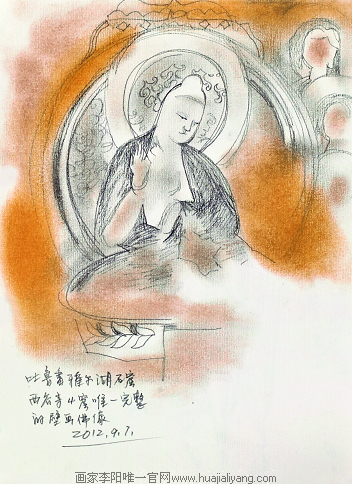 吐鲁番雅尔湖石窟
西谷寺4窟唯一完整
的壁画佛像
2012.9.7.
画家李阳唯一官网www.huajialiyang.com